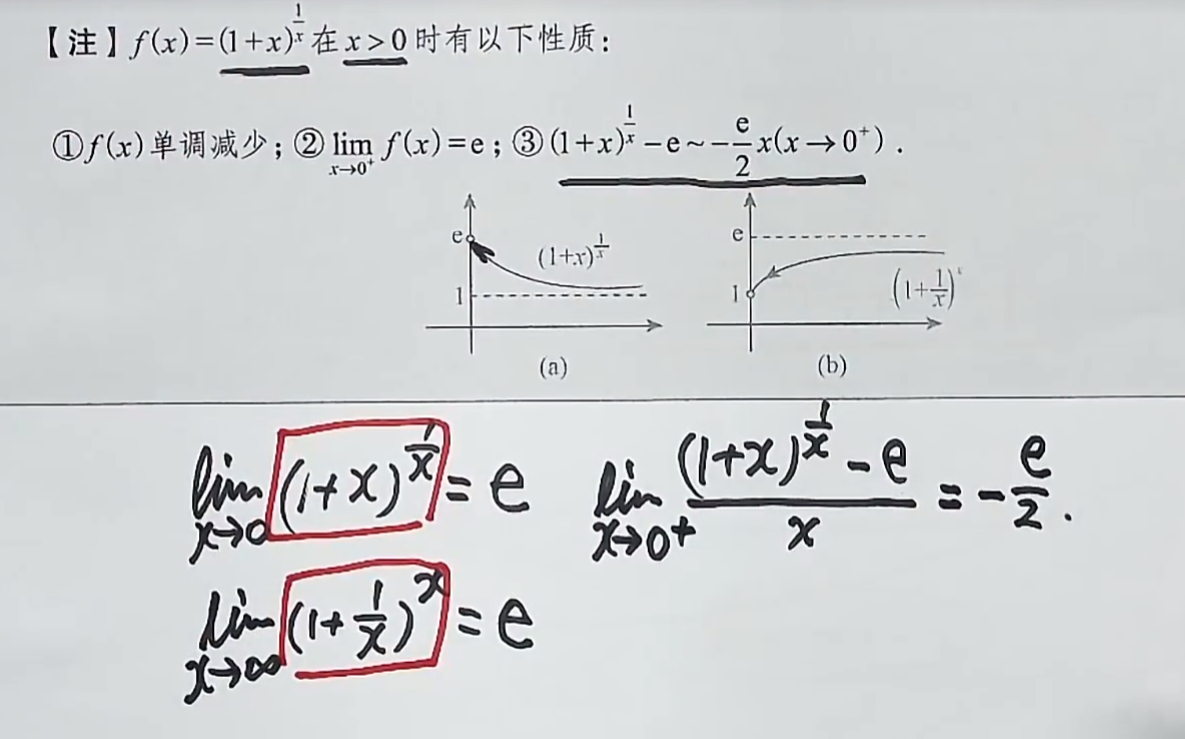 【注】f(x)=(1+x)^{\frac{1}{x}}在 x>0 时有以下性质：
①f(x)单调减少；②\lim_{x→0^+} f(x)=e；③(1+x)^{\frac{1}{x}}-e～-\frac{e}{2}x(x→0^+)．
e
(1+x)^{\frac{1}{x}}
1
(a)
e
1
(1+\frac{1}{x})^x
(b)
\lim_{x→0}(1+x)^{\frac{1}{x}}=e
\lim_{x→0^+}\frac{(1+x)^{\frac{1}{x}}-e}{x}=-\frac{e}{2}.
\lim_{x→∞}(1+\frac{1}{x})^x=e